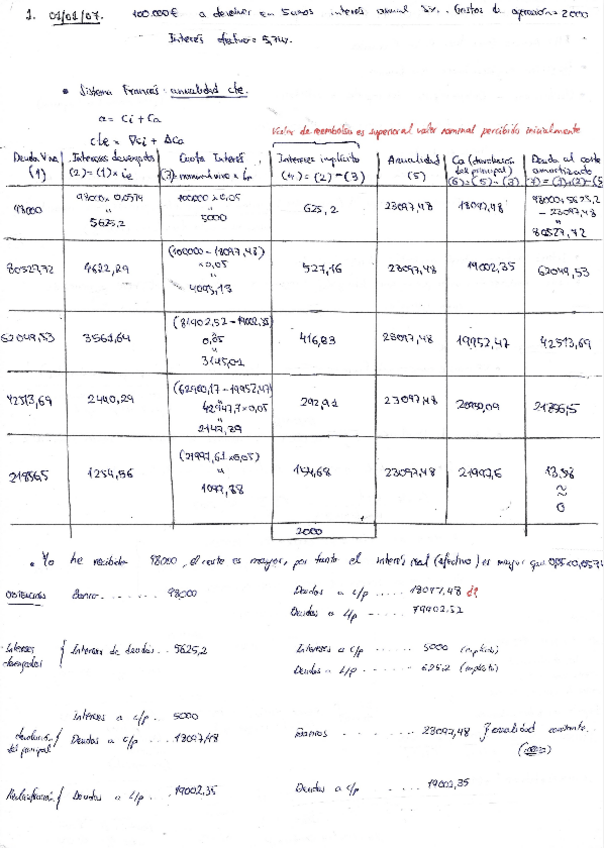 1. 01/01/07. 100.000€ a devolver en 5 años interés anual 5%. Gastos de operación = 2000
Interés efectivo = 5,74%.
• Sistema Francés: anualidad cte.
a = Ci + Ca
cte = ∇Ci + ΔCa
Valor de reembolso es superior al valor nominal percibido inicialmente
Deuda Viva (1) Intereses devengados (2) = (1) × ie Cuota Interés (3) = nominal vivo × in Intereses implícito (4) = (2) - (3) Anualidad (5) Ca (devolución del principal) (6) = (5) - (3) Deuda al coste amortizado
98000 98000 × 0,0574 " 5625,2 100000 × 0,05 " 5000 625,2 23097,48 18097,48 98000 + 5625,2 - 23097,48 " 80527,72
80527,72 4622,29 (100000 - 18097,48) × 0,05 " 4095,13 527,16 23097,48 19002,35 62049,53
62049,53 3561,64 (81902,52 - 19002,35) 0,05 " 3145,01 416,83 23097,48 19952,47 42513,69
42513,69 2440,29 (62900,17 - 19952,47) " 42947,7 × 0,05 " 2147,39 292,91 23097,48 20950,09 21856,5
21856,5 1254,56 (21997,61 × 0,05) " 1099,88 154,68 23097,48 21997,6 13,58 ≈ 0
2000
• Yo he recibido 98000, el coste es mayor, por tanto el interés real (efectivo) es mayor que
Banco 98000 Deudas a c/p 18097,48
Deudas a L/p 79902,52
Intereses devengados { Intereses de deudas 5625,2 Intereses a c/p 5000
Deudas a L/p 625,2 (implícito)
Intereses a c/p 5000
devolución del principal { Deudas a c/p 18097,48 Bancos 23097,48 } anualidad constante
Reclasificación { Deudas a L/p 19002,35 Deudas a c/p 19002,35